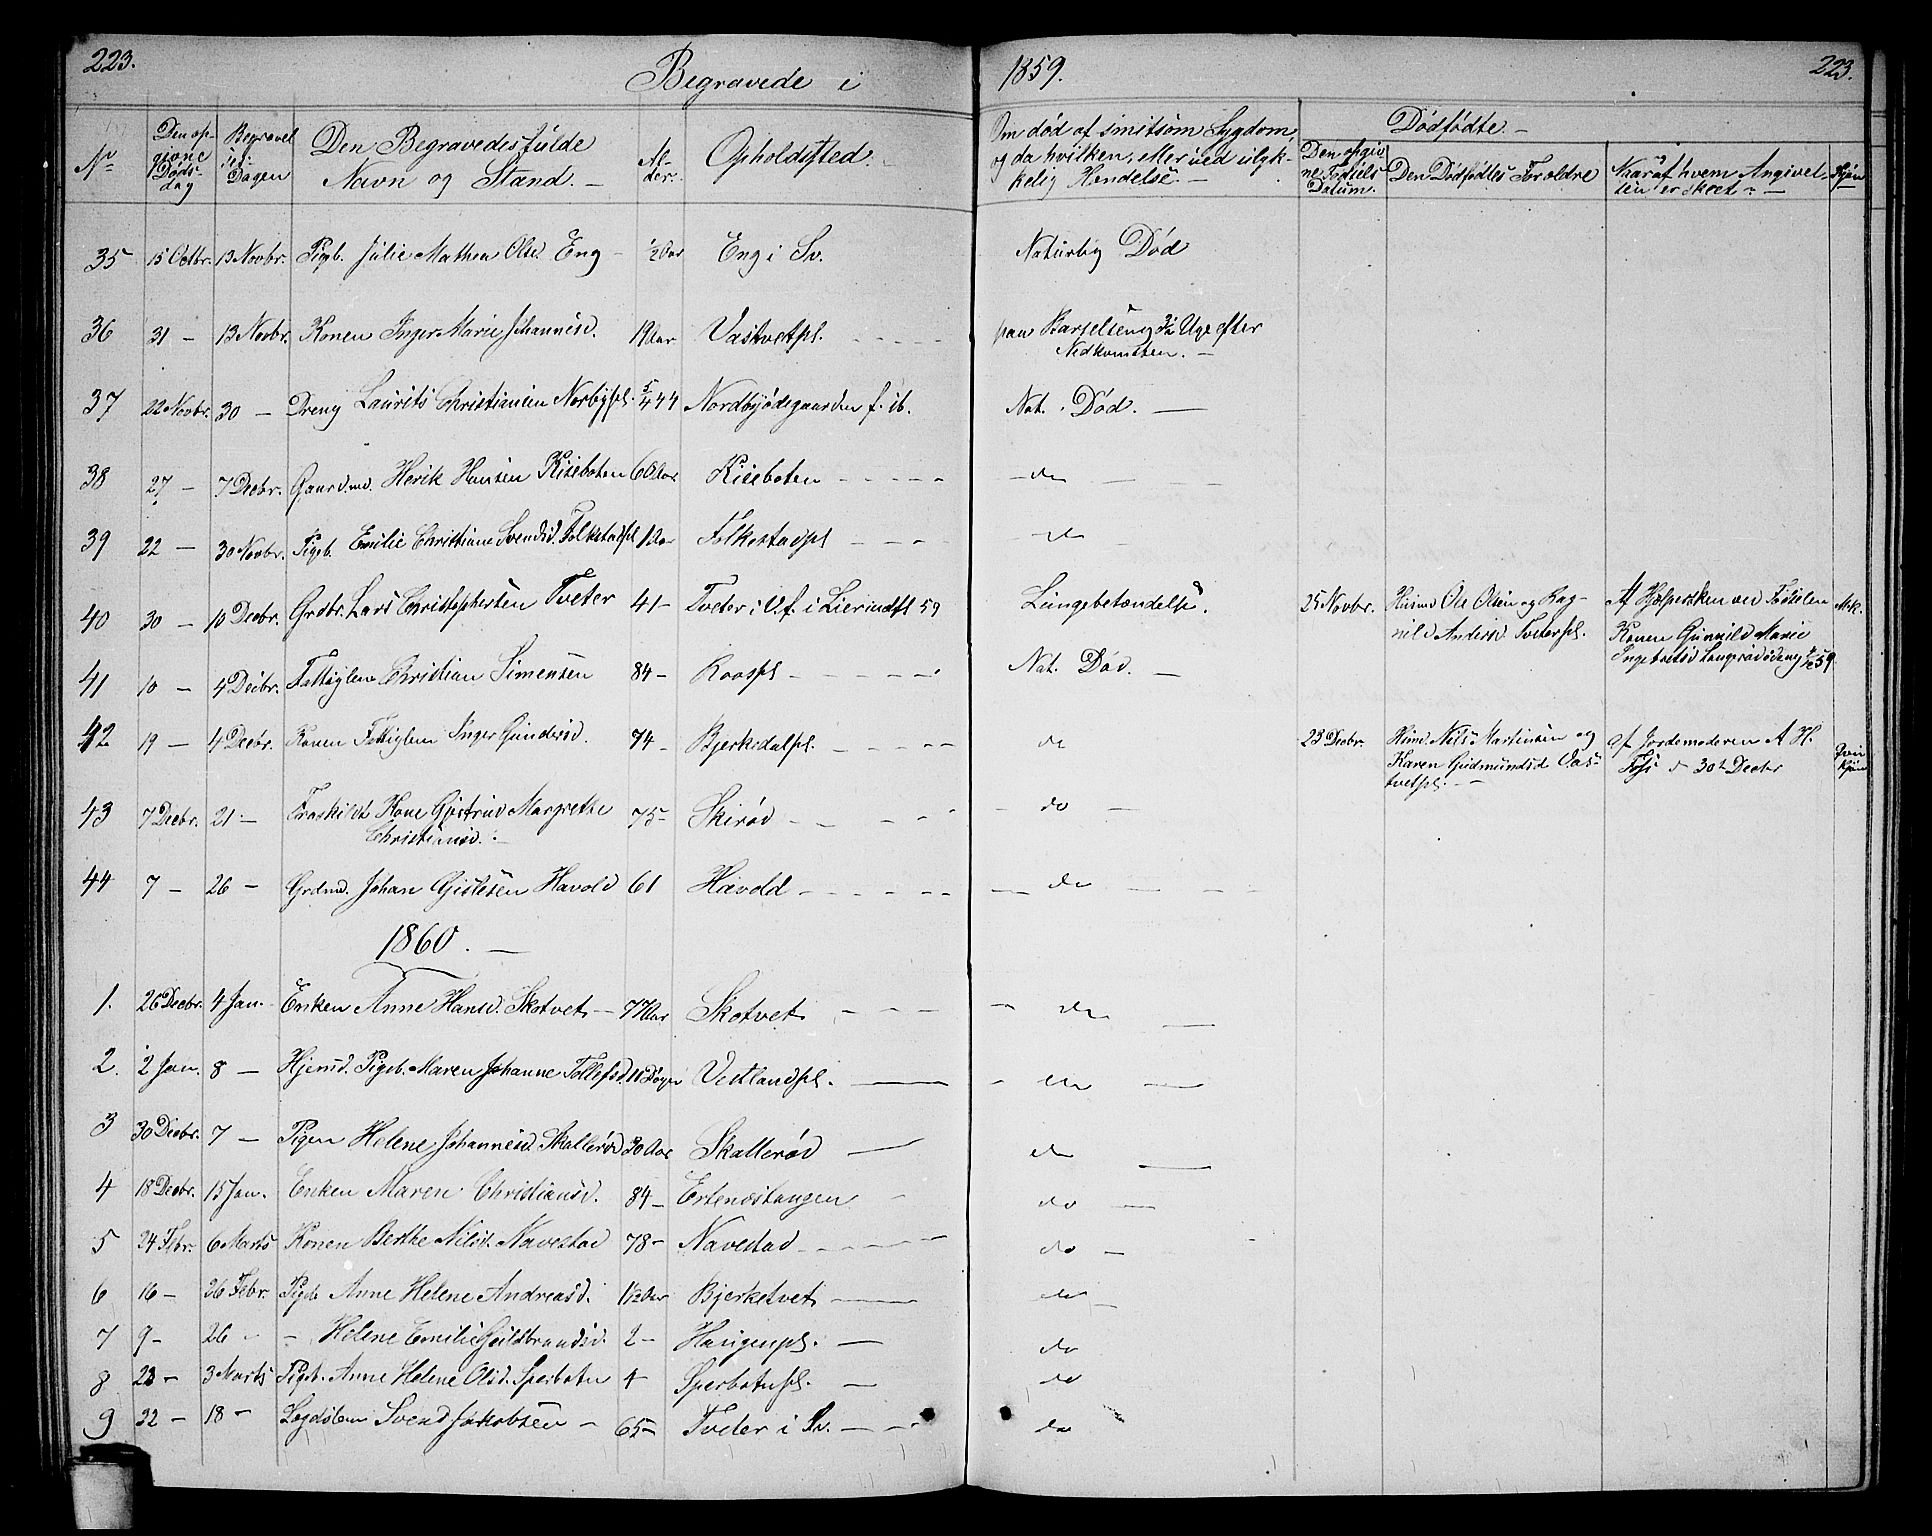 223.
Begravede i 1859.
223.
No
Den opgivne Dødsdag
Begravelses Dagen
Den Begravedes fulde Navn og Stand. —
Alder.
Opholdssted.
Om død af smitsom Sygdom, og da hvilken, eller ved ulykkelig Hændelse. —
Dødfødte. —
Den opgivne Fødsels Datum.
Den Dødfødtes Forældre
Naar af hvem Angivelsen er skeet. —
Kjøn
35 15 Octbr. 13 Novbr. Pigeb. Julie Mathea Olsd. Eng — 1/2 Aar Eng i Sv. Naturlig Død
36 31 — 13 Novbr. Konen Inger Marie Johannesd. 19 Aar Vastvetpl. paa Barselseng Uge efter
Nedkomsten. —
37 22 Novbr. 30 — Dreng Laurits Christiansen Norbypl. Nordbyødegaarden f. ib. Nat. Død. —
38 27 — 7 Decbr. Gaardmd. Henrik Hansen Riseboten 60 Aar Riseboten — do —
39 22 — 30 Novbr. Pigeb. Emilie Christiane Svendsd. Folkestadpl 1 Aar Folkestadpl — do
40 30 — 10 Decbr. Grdbr. Lars Christophersen Tveter 41 — Tveter i V. f. i Lier 59 Lungebetændelse. 25 Novbr. Husmd Ole Olsen og Rag-
nild Andersd. Tveterpl.
Af Hjelpersken ved Fødselen
Konen Gunnild Marie
Ingebretsd 59.
Mk.
41 10 — 4 Decbr. Fattiglem Christian Simensen 84 — Roospl — Nat. Død. —
42 19 — 4 Decbr. Konen Fattiglem Inger Gundersd. 74 — Bjerkedalpl. — do 23 Decbr. Husmd. Nils Martinsen og
Karen Gudmundsd Vas-
tvetpl. —
af Jordemoderen A H.
Foss d 30te Decbr
Qvin
kjøn
43 7 Decbr. 21 — Fraskildt Kone Gjertrud Margrethe
Christiansd. — 75 — Skirød — do —
44 7 — 26 — Grdmd. Johan Gislesen Havold 61 Havold — do —
1860. —
1. 26 Decbr. 4 Jan. Enken Anne Hansd. Skotvet — 77 Aar Skotvet — do —
2. 2 Jan. 8 — Pigeb. Maren Johanne Tollefsd. Døgn Vestlandpl. — do —
3 30 Decbr. 7 — Pigen Helene Johannesd. Skallerød 30 Aar Skallerød — do —
4 18 Decbr. 15 Jan. Enken Maren Christiansd. 84 — Ertenstangen — do —
5 24 Febr. 6 Marts Konen Berthe Nilsd. Navestad 78 — Navestad — do —
6 16 — 26 Febr. Pigeb Anne Helene Andreasd. 1 1/2 Aar Bjerketvet — do —
7 9 — 26 — — Helene Emilie Guldbrandsd. 2 — Haugenpl. — do
8 23 — 3 Marts Pigeb. Anne Helene Olsd. Sperboten 4 — Sperbotenpl. — do
9 22 — 18 — Legdslem Svend Jakobsen — 65 — Tveter i Sv. — do